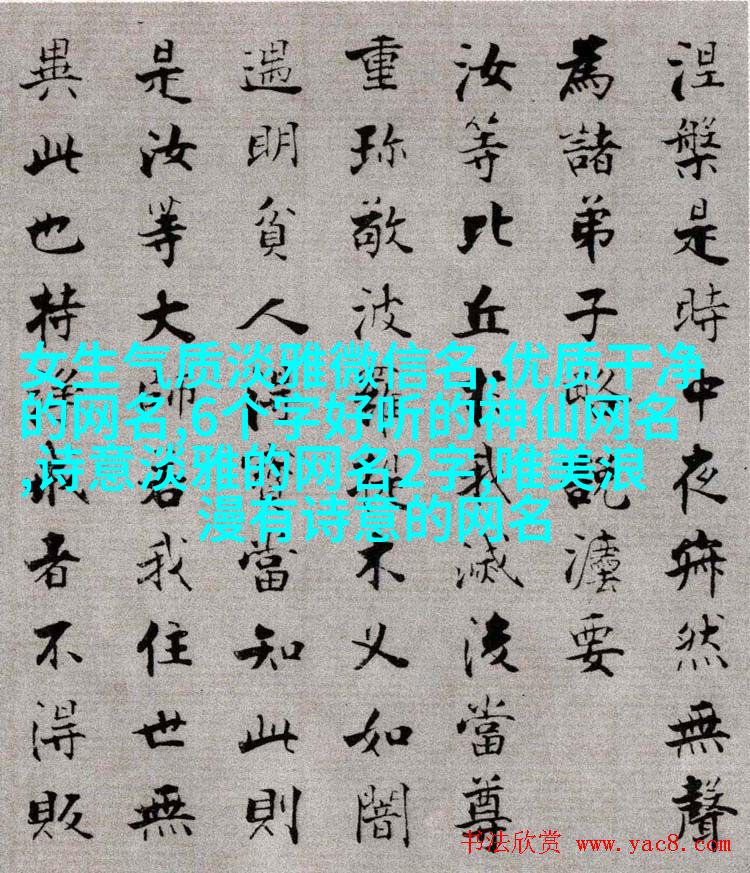 涅槃是時中夜寂然無聲
為諸弟子略說灋要
汝等比丘於我滅後當尊
重珎敬波羅提木叉如闇
遇明貧人得寶當知此則
是汝等大師若我住世無
異此也持淨戒者不得販
女生气质淡雅微信名,优质干净
的网名,6个字好听的神仙网名
,诗意淡雅的网名2字,唯美浪
漫有诗意的网名
书法欣赏 www.yac8.com